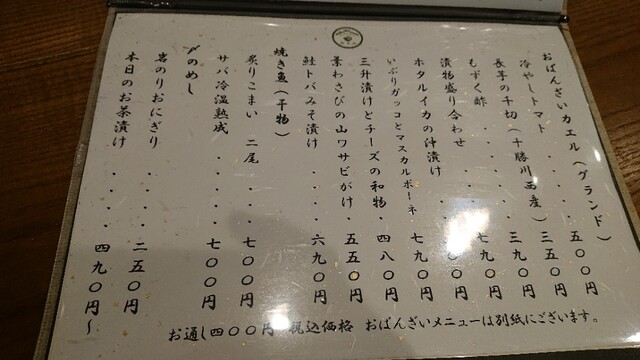 おばんざいカエル（グランド）
五〇〇円
冷やしトマト・・・・・三五〇円
長芋の千切（十勝川西産）三九〇円
もずく酢・・・・・七九〇円
漬物盛り合わせ・・・〇〇円
ホタルイカの沖漬け・・七九〇円
いぶりガッコとマスカルポーネ
四八〇円
三升漬けとチーズの和物・五五〇円
葉わさびの山ワサビがけ・
鮭トバみそ漬け・・・・六九〇円
焼き魚（干物）
炙りこまい 二尾・・・七〇〇円
サバ冷温熟成・・・・七〇〇円
〆のめし
岩のりおにぎり・・・・二五〇円
本日のお茶漬け・・・・四九〇円～
お通し四〇〇円 税込価格 おばんざいメニューは別紙にございます。